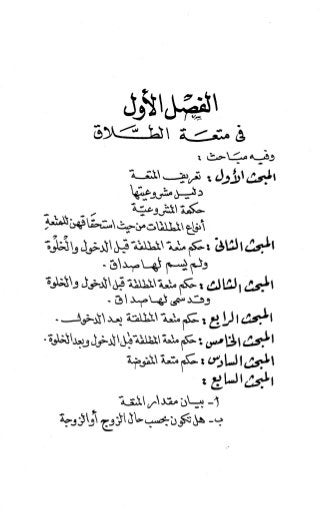 الفصل الأول
فى متعة الطلاق
وفيه مباحث :
المبحث الأول : تعريف المتعة
دليل مشروعيتها
حكمة المشروعية
أنواع المطلقات من حيث استحقاقهن للمتعة
المبحث الثانى : حكم متعة المطلقة قبل الدخول والخلوة
ولم يسم لها صداق .
المبحث الثالث : حكم متعة المطلقة قبل الدخول والخلوة
وقد سمى لها صداق .
المبحث الرابع : حكم متعة المطلقة بعد الدخول .
المبحث الخامس : حكم متعة المطلقة قبل الدخول وبعد الخلوة .
المبحث السادس : حكم متعة المفوضة
المبحث السابع :
أ - بيان مقدار المتعة
ب - هل تكون بحسب حال الزوج أو الزوجة